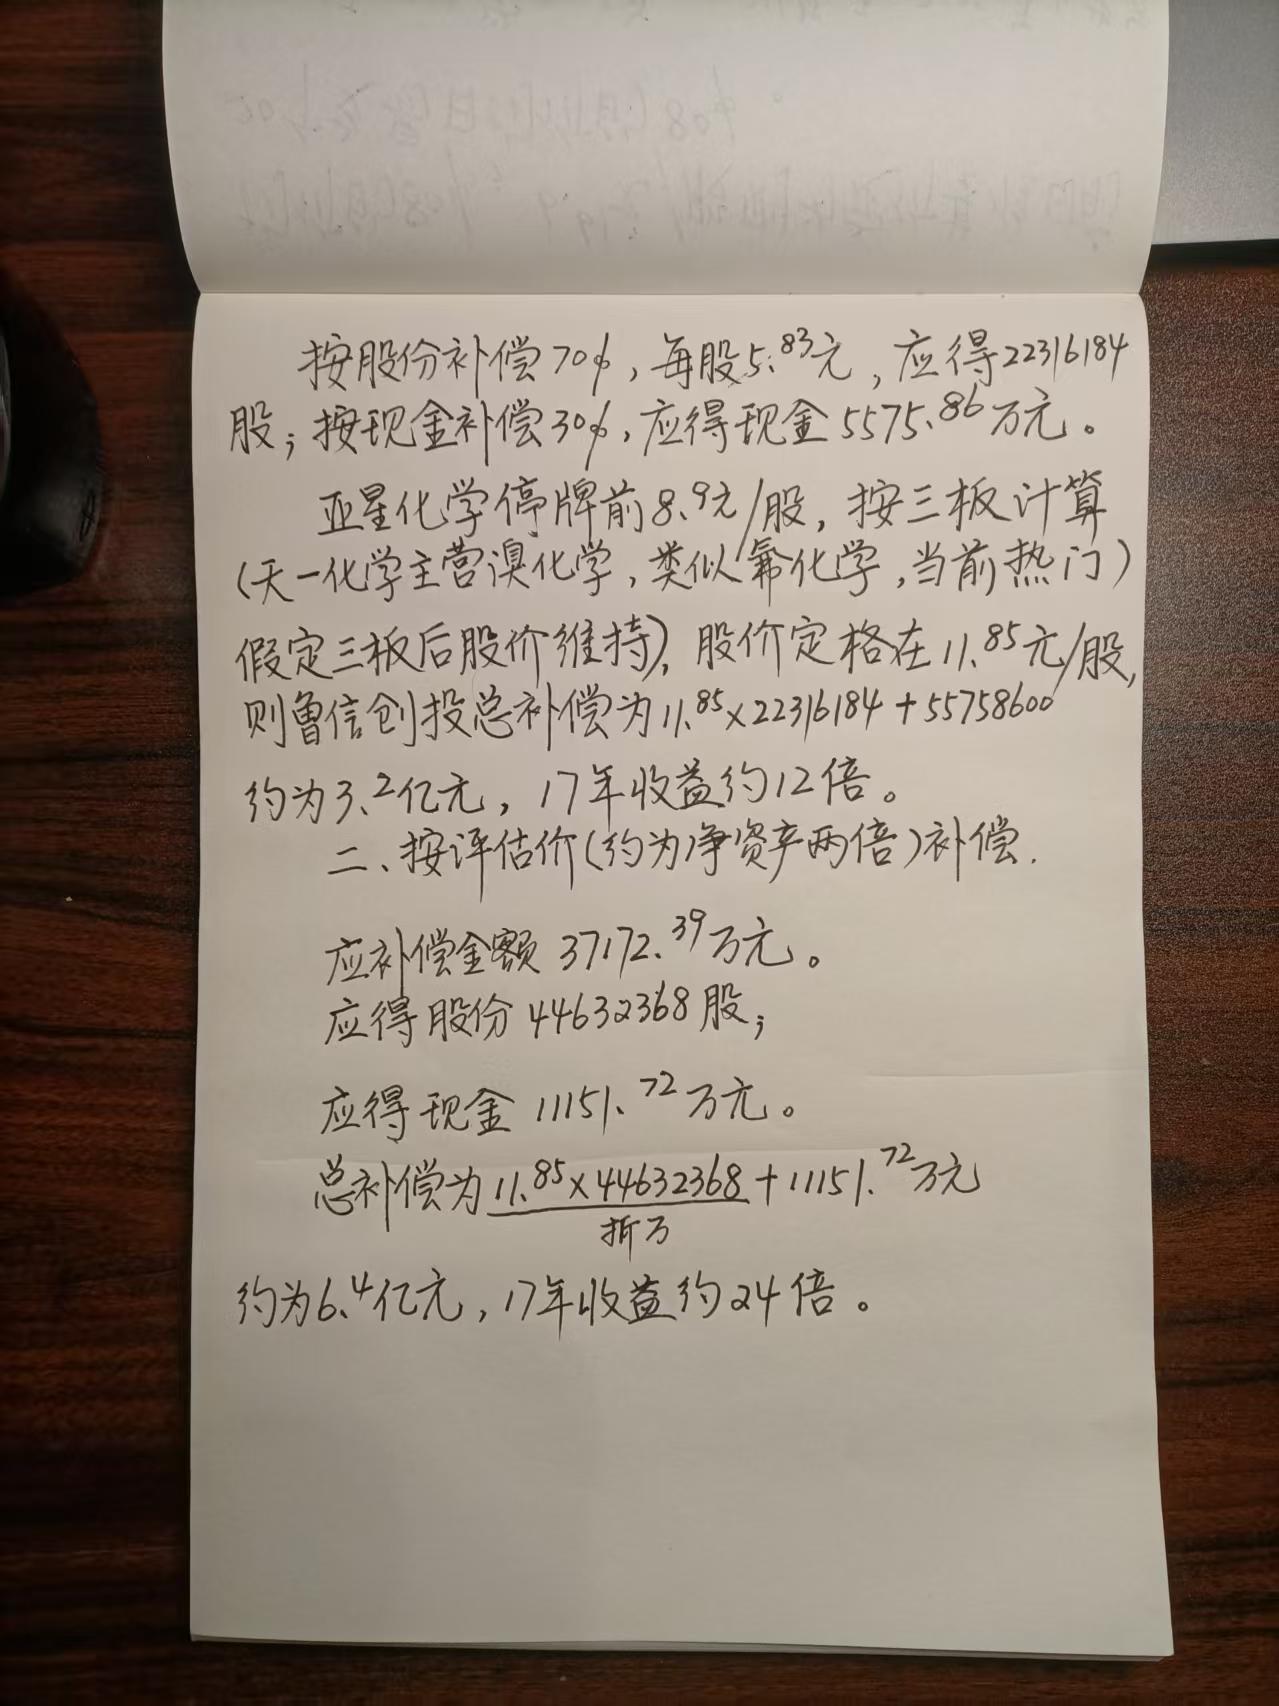 按股份补偿70%，每股5.83元，应得22316184
股；按现金补偿30%，应得现金5575.86万元。
亚星化学停牌前8.9元/股，按三板计算
(天一化学主营溴化学，类似氟化学，当前热门)
假定三板后股价维持)，股价定格在11.85元/股，
则鲁信创投总补偿为11.85×22316184+55758600
约为3.2亿元，17年收益约12倍。
二、按评估价(约为净资产两倍)补偿.
应补偿金额37172.39万元。
应得股份44632368股；
应得现金11151.72万元。
总补偿为11.85×44632368+11151.72万元
折万
约为6.4亿元，17年收益约24倍。